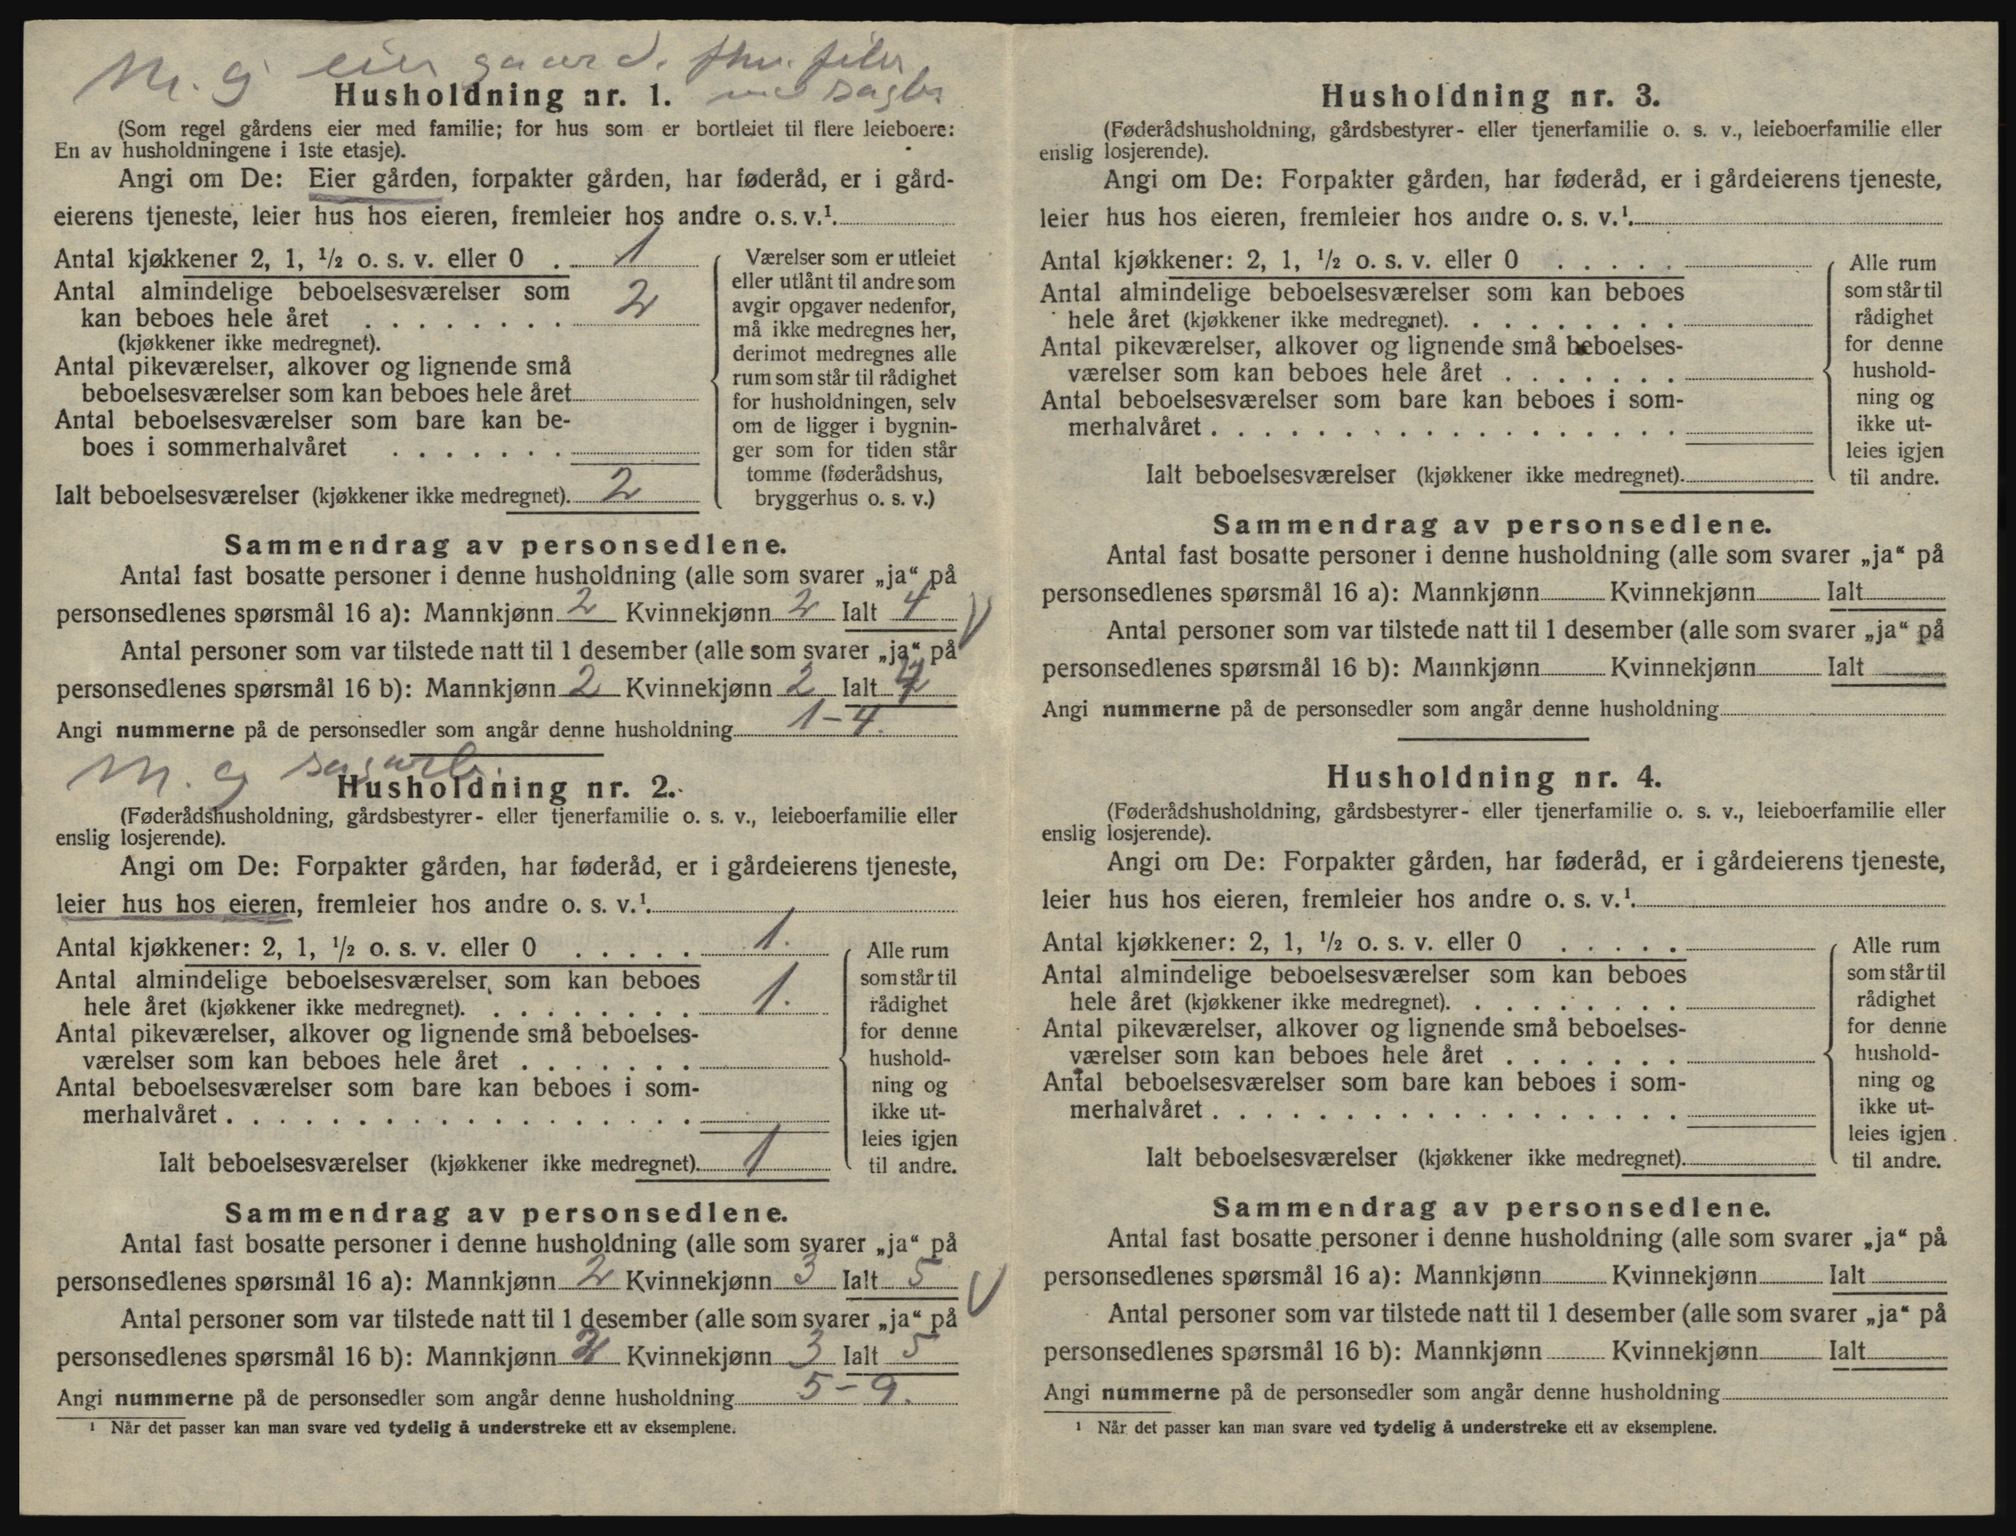 M. g eier gaard.
Husholdning nr. 1.
(Som regel gårdens eier med familie; for hus som er bortleiet til flere leieboere:
En av husholdningene i 1ste etasje).
Angi om De: Eier gården, forpakter gården, har føderåd, er i gård-
eierens tjeneste, leier hus hos eieren, fremleier hos andre o. s. v.¹
Antal kjøkkener 2, 1, ½ o. s. v. eller 0 . 1
Antal almindelige beboelsesværelser som
kan beboes hele året . . . . . . . . 2
(kjøkkener ikke medregnet).
Antal pikeværelser, alkover og lignende små
beboelsesværelser som kan beboes hele året
Antal beboelsesværelser som bare kan be-
boes i sommerhalvåret . . . . . . .
Ialt beboelsesværelser (kjøkkener ikke medregnet). 2
Værelser som er utleiet
eller utlånt til andre som
avgir opgaver nedenfor,
må ikke medregnes her,
derimot medregnes alle
rum som står til rådighet
for husholdningen, selv
om de ligger i bygnin-
ger som for tiden står
tomme (føderådshus,
bryggerhus o. s. v.)
Sammendrag av personsedlene.
Antal fast bosatte personer i denne husholdning (alle som svarer „ja“ på
personsedlenes spørsmål 16 a): Mannkjønn 2 Kvinnekjønn 2 Ialt 4
Antal personer som var tilstede natt til 1 desember (alle som svarer „ja“ på
personsedlenes spørsmål 16 b): Mannkjønn 2 Kvinnekjønn 2 Ialt 4
Angi nummerne på de personsedler som angår denne husholdning 1-4.
M. g sagarb.
Husholdning nr. 2.
(Føderådshusholdning, gårdsbestyrer- eller tjenerfamilie o. s. v., leieboerfamilie eller
enslig losjerende).
Angi om De: Forpakter gården, har føderåd, er i gårdeierens tjeneste,
leier hus hos eieren, fremleier hos andre o. s. v.¹
Antal kjøkkener: 2, 1, ½ o. s. v. eller 0 . . . . . 1.
Antal almindelige beboelsesværelser som kan beboes
hele året (kjøkkener ikke medregnet). . . . . . . . . 1.
Antal pikeværelser, alkover og lignende små beboelses-
værelser som kan beboes hele året . . . . . . .
Antal beboelsesværelser som bare kan beboes i som-
merhalvåret . . . . . . . . . . . . . . . . . .
Ialt beboelsesværelser (kjøkkener ikke medregnet). 1
Alle rum
som står til
rådighet
for denne
hushold-
ning og
ikke ut-
leies igjen
til andre.
Sammendrag av personsedlene.
Antal fast bosatte personer i denne husholdning (alle som svarer „ja“ på
personsedlenes spørsmål 16 a): Mannkjønn 2 Kvinnekjønn 3 Ialt 5
Antal personer som var tilstede natt til 1 desember (alle som svarer „ja“ på
personsedlenes spørsmål 16 b): Mannkjønn 2 Kvinnekjønn 3 Ialt 5
Angi nummerne på de personsedler som angår denne husholdning 5-9.
¹ Når det passer kan man svare ved tydelig å understreke ett av eksemplene.
Husholdning nr. 3.
(Føderådshusholdning, gårdsbestyrer- eller tjenerfamilie o. s. v., leieboerfamilie eller
enslig losjerende).
Angi om De: Forpakter gården, har føderåd, er i gårdeierens tjeneste,
leier hus hos eieren, fremleier hos andre o. s. v.¹
Antal kjøkkener: 2, 1, ½ o. s. v. eller 0 . . . . .
Antal almindelige beboelsesværelser som kan beboes
hele året (kjøkkener ikke medregnet). . . . . . . . .
Antal pikeværelser, alkover og lignende små beboelses-
værelser som kan beboes hele året . . . . . . .
Antal beboelsesværelser som bare kan beboes i som-
merhalvåret . . . . . . . . . . . . . . . . . .
Ialt beboelsesværelser (kjøkkener ikke medregnet).
Alle rum
som står til
rådighet
for denne
hushold-
ning og
ikke ut-
leies igjen
til andre.
Sammendrag av personsedlene.
Antal fast bosatte personer i denne husholdning (alle som svarer „ja“ på
personsedlenes spørsmål 16 a): Mannkjønn Kvinnekjønn Ialt
Antal personer som var tilstede natt til 1 desember (alle som svarer „ja“ på
personsedlenes spørsmål 16 b): Mannkjønn Kvinnekjønn Ialt
Angi nummerne på de personsedler som angår denne husholdning
Husholdning nr. 4.
(Føderådshusholdning, gårdsbestyrer- eller tjenerfamilie o. s. v., leieboerfamilie eller
enslig losjerende).
Angi om De: Forpakter gården, har føderåd, er i gårdeierens tjeneste,
leier hus hos eieren, fremleier hos andre o. s. v.¹
Antal kjøkkener: 2, 1, ½ o. s. v. eller 0 . . . . .
Antal almindelige beboelsesværelser som kan beboes
hele året (kjøkkener ikke medregnet). . . . . . . . .
Antal pikeværelser, alkover og lignende små beboelses-
værelser som kan beboes hele året . . . . . . .
Antal beboelsesværelser som bare kan beboes i som-
merhalvåret . . . . . . . . . . . . . . . . . .
Ialt beboelsesværelser (kjøkkener ikke medregnet).
Alle rum
som står til
rådighet
for denne
hushold-
ning og
ikke ut-
leies igjen
til andre.
Sammendrag av personsedlene.
Antal fast bosatte personer i denne husholdning (alle som svarer „ja“ på
personsedlenes spørsmål 16 a): Mannkjønn Kvinnekjønn Ialt
Antal personer som var tilstede natt til 1 desember (alle som svarer „ja“ på
personsedlenes spørsmål 16 b): Mannkjønn Kvinnekjønn Ialt
Angi nummerne på de personsedler som angår denne husholdning
¹ Når det passer kan man svare ved tydelig å understreke ett av eksemplene.